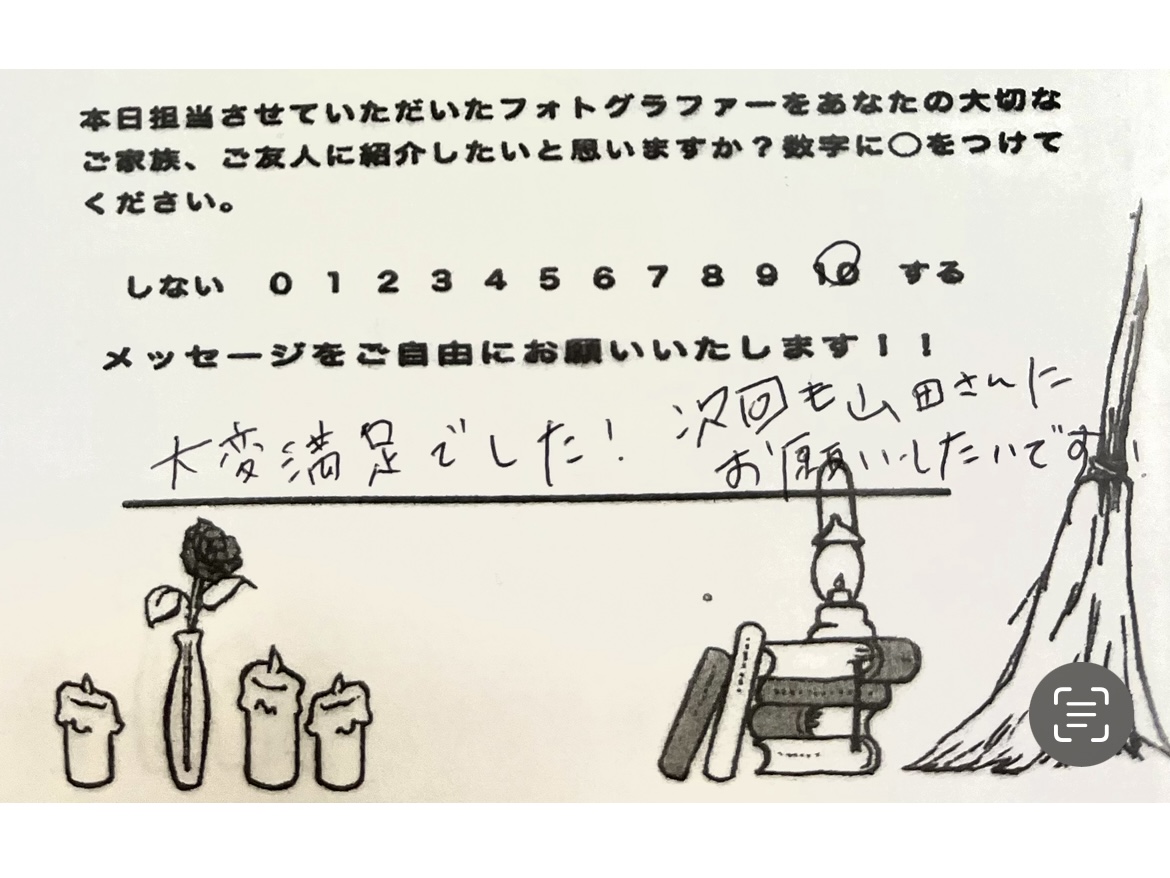 本日担当させていただいたフォトグラファーをあなたの大切な
ご家族、ご友人に紹介したいと思いますか?数字に〇をつけて
ください。
しない 0 1 2 3 4 5 6 7 8 9 10 する
メッセージをご自由にお願いいたします!!
大変満足でした!
次回も山田さんに
お願いしたいです!